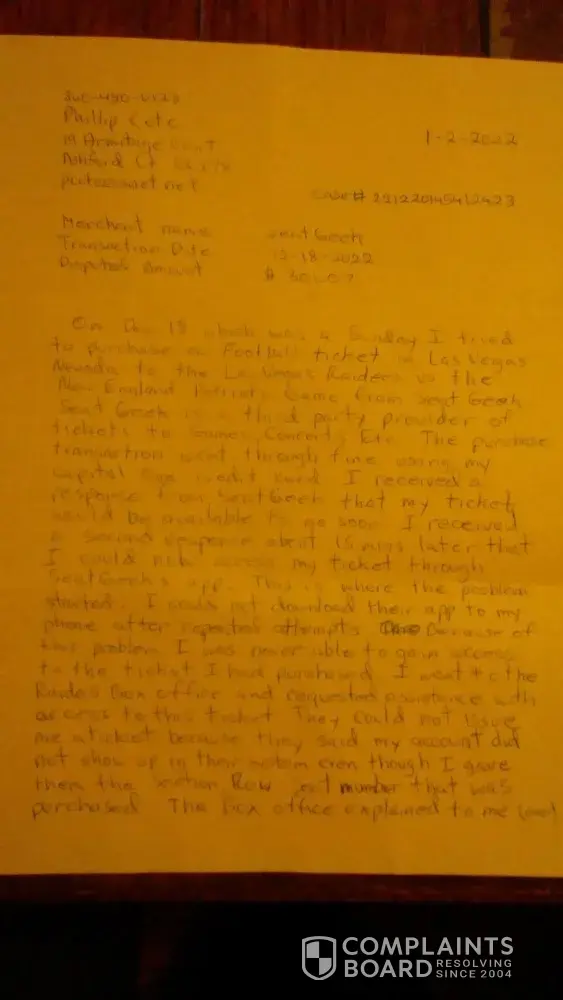 Phillip
19 Armitage
Ashford Ct
1-2-2022
case #
Merchant name SeatGeek
Transaction Date 12-18-2022
Disputed Amount $
On Dec 18 which was a Sunday I tried
to purchase a Football ticket in Las Vegas
Nevada to the Las Vegas Raiders vs the
New England Patriots Game from Seat Geek
Seat Geek is a third party provider of
tickets to Games, Concerts, Etc. The purchase
transaction went through fine using my
capital one credit card. I received a
response from SeatGeek that my ticket
would be available to go soon. I received
a second response about 15 mins later that
I could now access my ticket through
SeatGeek's app. This is where the problem
started. I could not download their app to my
phone after repeated attempts. Because of
this problem I was never able to gain access
to the ticket I have purchased. I went to the
Raiders Box office and requested assistance with
access to this ticket They could not issue
me a ticket because they said my account did
not show up in their system even though I gave
them the section Row seat number that was
purchased. The box office explained to me
COMPLAINTS
BOARD RESOLVING
SINCE 2004